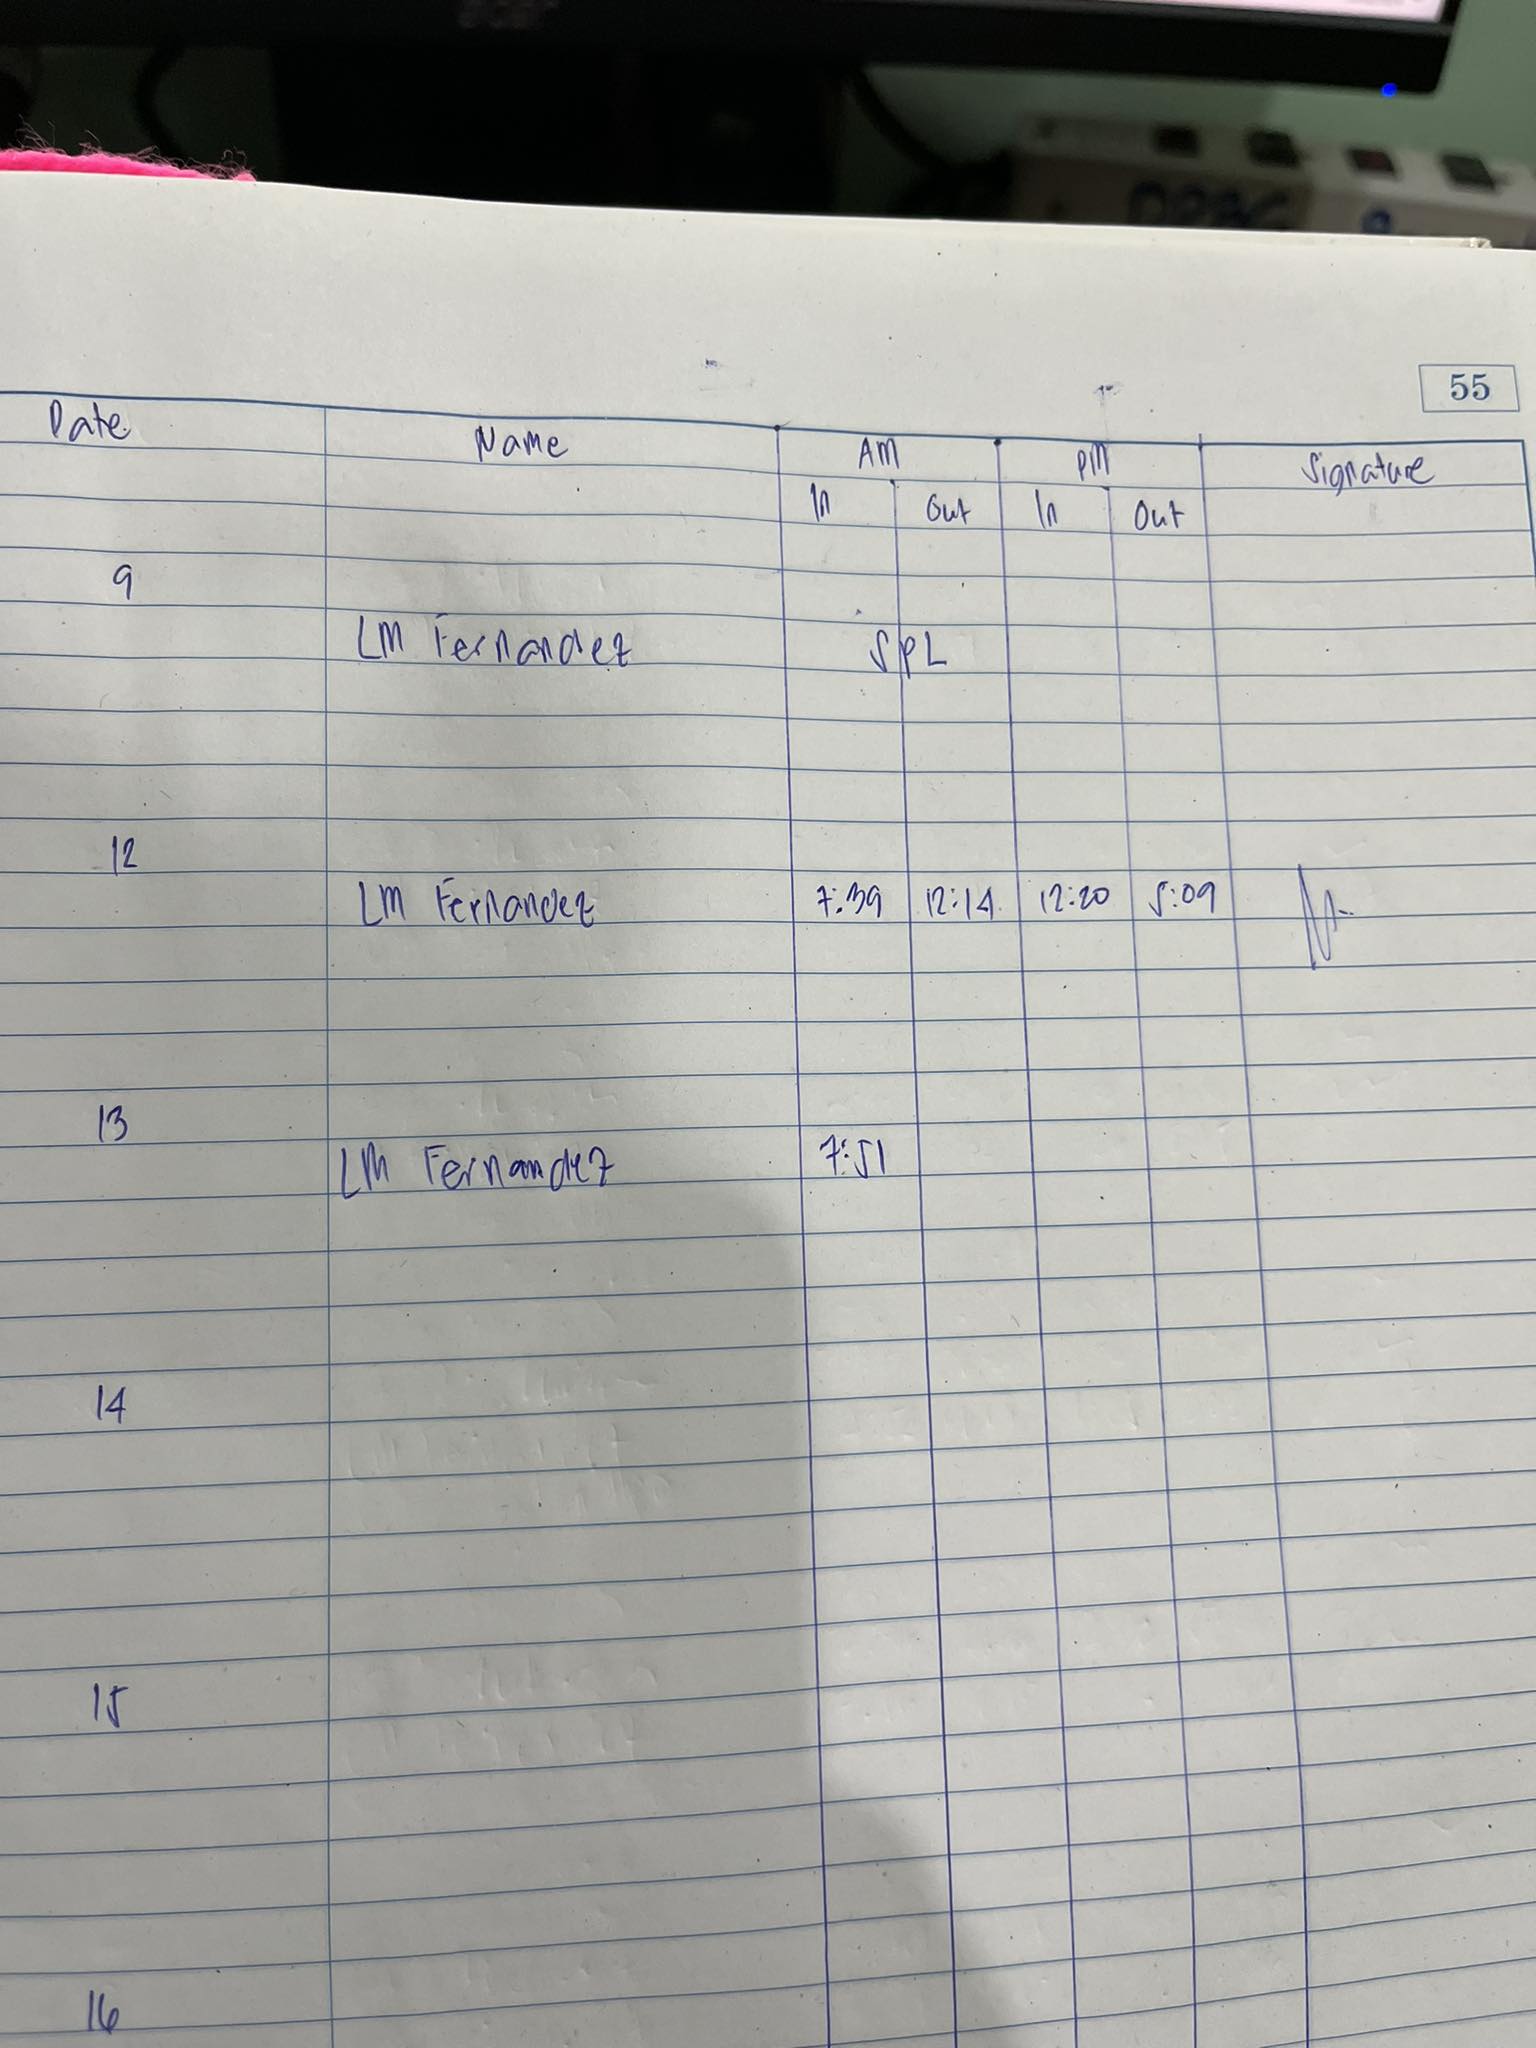 55
Date Name AM PM Signature
In Out In Out
9
LM Fernandez SPL
12
LM Fernandez 7:39 12:14 12:20 5:09
13
LM Fernandez 7:51
14
15
16